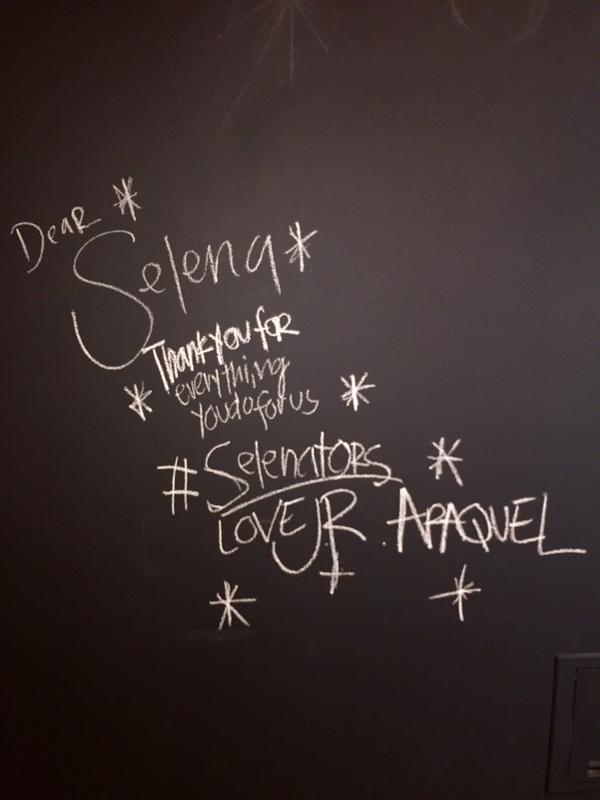 Dear
Selena
Thank you for
everything
you do for us
#Selenators
LOVE JR. APAQUEL